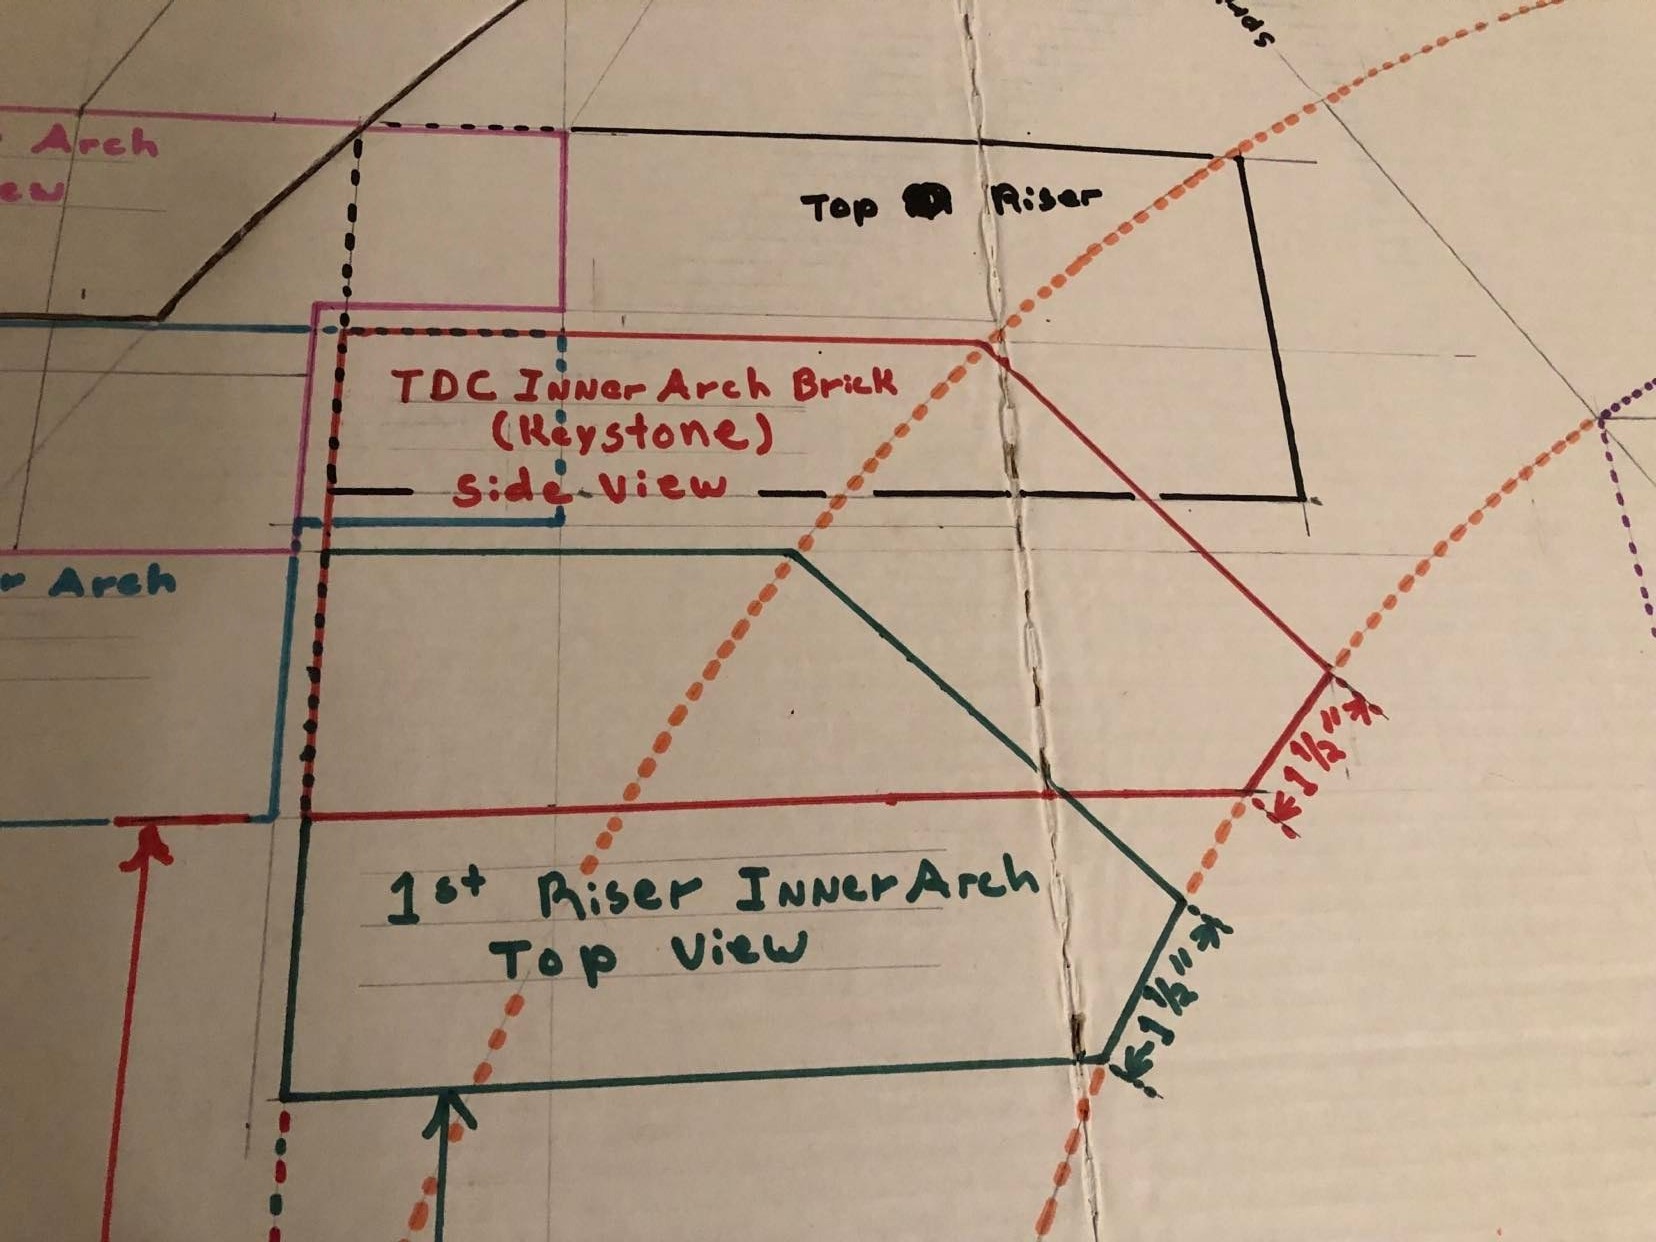 Arch
Top Riser
TDC Inner Arch Brick
(Keystone)
Side View
Arch
1 1/2"
1st Riser Inner Arch
Top View
1 1/2"